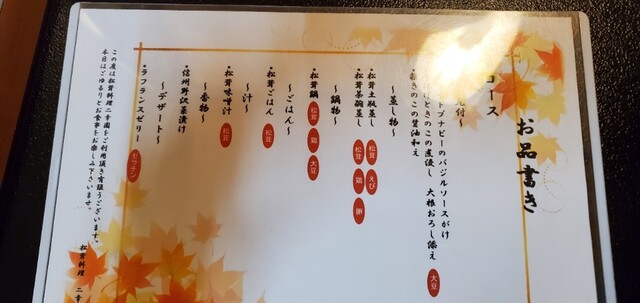 お品書き
コース
付～
トプナビーのバジルソースがけ
けときのこの煮浸し 大根おろし添え 大豆
きのこの醤油和え
～蒸し物～
・松茸土瓶蒸し 松茸 えび
・松茸茶碗蒸し 松茸 鶏 卵
～鍋物～
・松茸鍋 松茸 鶏 大豆
～ごはん～
・松茸ごはん 松茸
～汁～
・松茸味噌汁 松茸
～香物～
・信州野沢菜漬け
～デザート～
・ラフランスゼリー ゼラチン
この度は松茸料理二幸園をご利用頂き有難うございます。
本日はごゆるりとお食事をお楽しみ下さいませ。
松茸料理 二幸